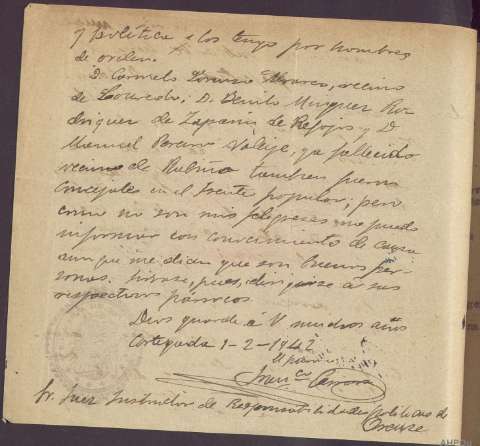 y política a los tuyo por hombres
de orden.
D. Carmelo Lorenzo Alvarez, vecino
de Louredo; D. Benito Minguez Ro-
driguez de Zapeaus de Refojos y D
Manuel Pereiro Valeije, ya fallecido
vecino de Rabiño tambien fueron
Concejales en el frente popular; pero
como no son mis feligreses no puedo
informar con conocimiento de causa
aunque me dicen que son buenas per-
sonas. Sirvase, pues, dirigirse a sus
respectivos párrocos
Dios guarde á V muchos años
Cortegada 1-2-1942
El párroco
Sr. Juez Instructor de Responsabilidades politicas de
Orense